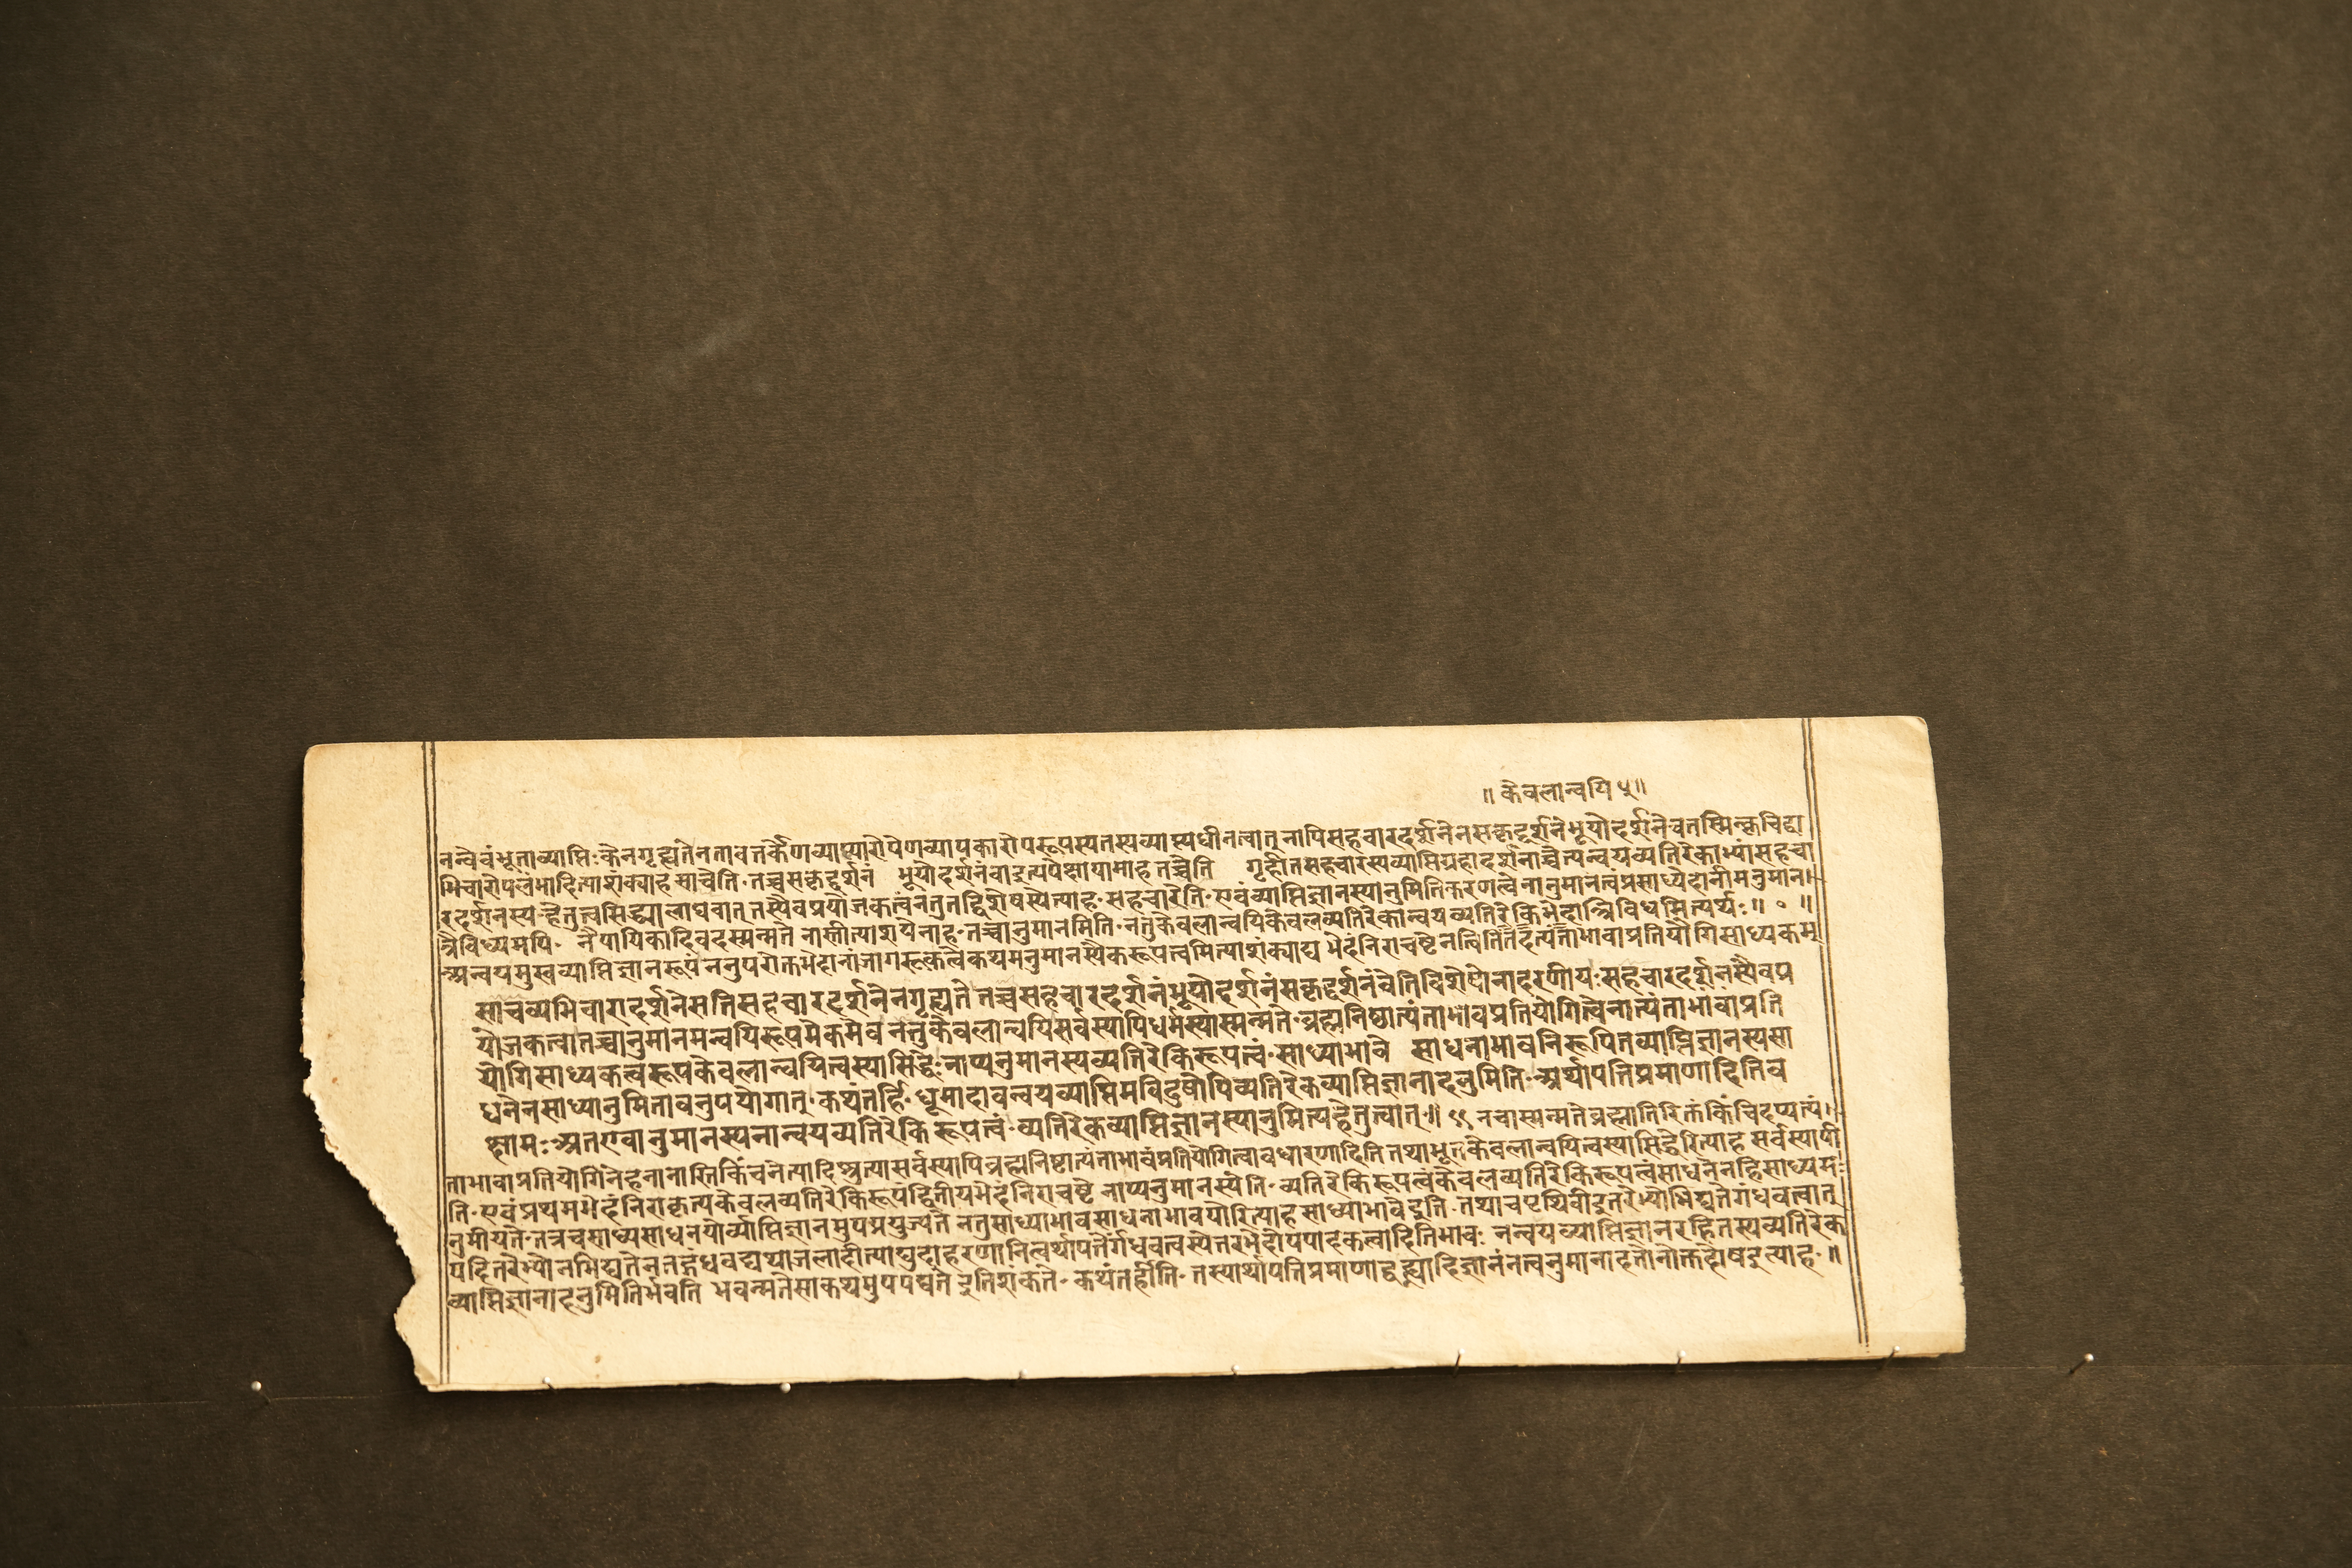 ॥ केवलान्वयि ५॥
नन्वेवंभूताव्याप्तिःकेनगृह्यतेनतावत्तर्केणव्याप्यारोपेणव्यापकारोपरूपस्यतस्यव्याप्त्यधीनत्वात् नापिसहचारदर्शनेनसकृद्दर्शनेभूयोदर्शनेचतस्मिन्क्वचिद्व्य
भिचारोपलंभादित्याशंक्याह साचेति॰ तच्चसकृद्दर्शनं भूयोदर्शनंवाइत्यपेक्षायामाह तच्चेति गृहीतसहचारस्यव्याप्तिग्रहाददर्शनाच्चेत्यन्वयव्यतिरेकाभ्यांसहचा
रदर्शनस्य हेतुत्वसिद्ध्यालाघवात् तस्यैवप्रयोजकत्वंनतुतद्विशेषस्येत्याह॰ सहचारेति॰ एवंव्याप्तिज्ञानस्यानुमितिकरणत्वेनानुमानत्वंप्रसाध्येदानीमनुमान
त्रैविध्यमपि॰ नैयायिकादिवदस्मन्मते नास्तीत्याशयेनाह॰ तच्चानुमानमिति॰ नतुकेवलान्वयिकेवलव्यतिरेकान्वयव्यतिरेकिभेदात्त्रिविधमित्यर्थः॥ ॰ ॥
अन्वयमुखव्याप्तिज्ञानरूपं ननुपरोक्तभेदानांजागरूकत्वेकथमनुमानस्यैकरूपत्वमित्याशंक्याद्य भेदंनिराचष्टेनत्वितितदत्यंताभावाप्रतियोगिसाध्यकम्
साचव्यभिचारादर्शनेसतिसहचारदर्शनेनगृह्यते तच्चसहचारदर्शनंभूयोदर्शनंसकृद्दर्शनंवेतिविशेषोनादरणीयः सहचारदर्शनस्यैवप्र
योजकत्वात्तच्चानुमानमन्वयिरूपमेकमेव नतुकेवलान्वयिसर्वस्यापिधर्मस्यास्मन्मते॰ ब्रह्मनिष्ठात्यंताभावप्रतियोगित्वेनात्यंताभावाप्रति
योगिसाध्यकत्वरूपकेवलान्वयित्वस्यासिद्धेः नाप्यनुमानस्यव्यतिरेकिरूपत्वं॰ साध्याभावे साधनाभावनिरूपितव्याप्तिज्ञानस्यसा
धनेनसाध्यानुमितावनुपयोगात् कथंतर्हि॰ धूमादावन्वयव्याप्तिमविदुषोपिव्यतिरेकव्याप्तिज्ञानादनुमितिः अर्थापत्तिप्रमाणादितिव
क्ष्यामः अतएवानुमानस्यनान्वयव्यतिरेकिरूपत्वं॰ व्यतिरेकव्याप्तिज्ञानस्यानुमित्यहेतुत्वात्॥ ९९ नचास्मन्मतेब्रह्मातिरिक्तंकिंचिदप्यत्यं
ताभावाप्रतियोगिनेहनानास्तिकिंचनेत्यादिश्रुत्यासर्वस्यापिब्रह्मनिष्टात्यंताभावंप्रतियोगित्वावधारणादिति तथाभूतकेवलान्वयित्वस्यासिद्धेरित्याह सर्वस्यापी
ति॰ एवंप्रथमभेदंनिराकृत्यकेवलव्यतिरेकिरूपद्वितीयभेदंनिराचष्टे नाप्यनुमानस्येति॰ व्यतिरेकिरूपत्वंकेवलव्यतिरेकिरूपत्वंसाधनेनहिसाध्यम
नुमीयते॰ तत्रचसाध्यसाधनयोर्व्याप्तिज्ञानमुपप्रयुज्यते नतुसाध्याभावसाधनाभावयोरित्याह साध्याभावेइति॰ तथाचपृथिवीइतरेभ्योभिद्यतेगंधवत्वात्
यदितरेभ्योनभिद्यतेनतद्गंधवद्यथाजलादीत्याद्युदाहरणानित्वर्थापत्तेर्गंधवत्वस्येतरभेदोपपादकत्वादितिभावः नन्वयव्याप्तिज्ञानरहितस्यव्यतिरेक
व्याप्तिज्ञानादनुमितिर्भवति भवन्मतेसाकथमुपपद्यते इतिशंकते॰ कथंतर्हीति॰ तस्यार्थापत्तिप्रमाणाद्वह्न्यादिज्ञानंनत्वनुमानादतोनोक्तदोषइत्याह॰॥